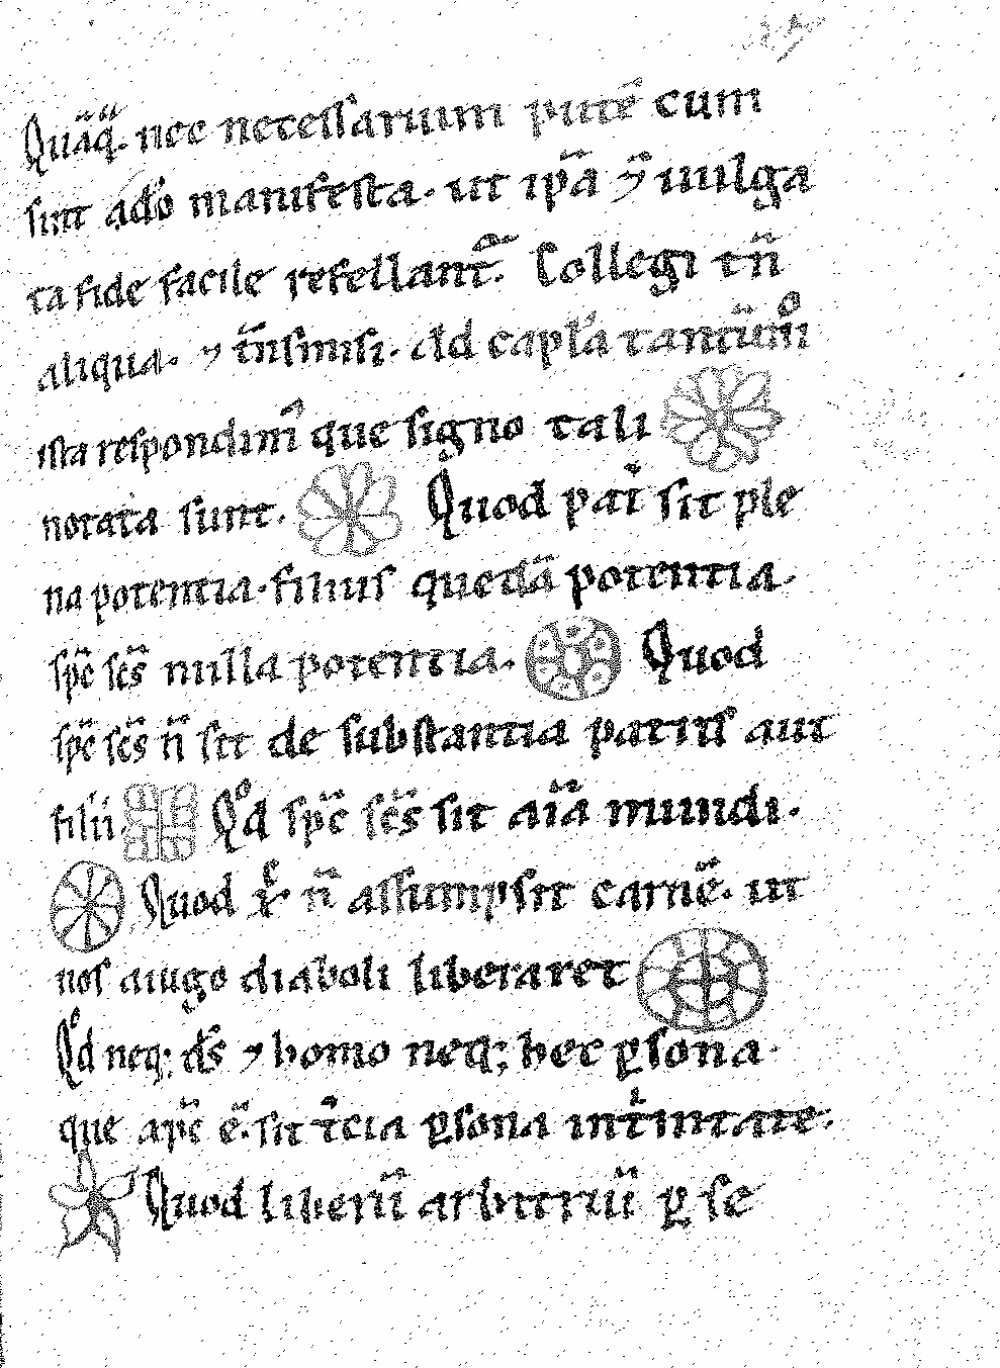 Quāq̄. nec necessarium putē cum
sint ad̓o manifesta. ut ip̄a ⁊̄ iuulga
ta fide facile refellant᷑. Collegi tn̄
aliqua. ⁊ t̄nsmisi. Ad capl̓a tantūm̊
ista respondim̄ que signo tali
notata sunt. Quod pat̓ sit ple
na potentia. filius quedā potentia.
sp̄c sc̄s nulla potentia. Quod
sp̄c sc̄s n̄ sit de substantia patris aut
filii Qͦd sp̄c sc̄s sit aīa mundi.
Quod xͨ. n̄ assumpsit carnē. ut
nos a iugo diaboli liberaret
Qͦd neq; ds̄ ⁊ homo neq; hec ꝑsona.
que xp̄c ē. sit t̓cia ꝑsona int̓initate.
Quod liberū arbitriū ꝑ se